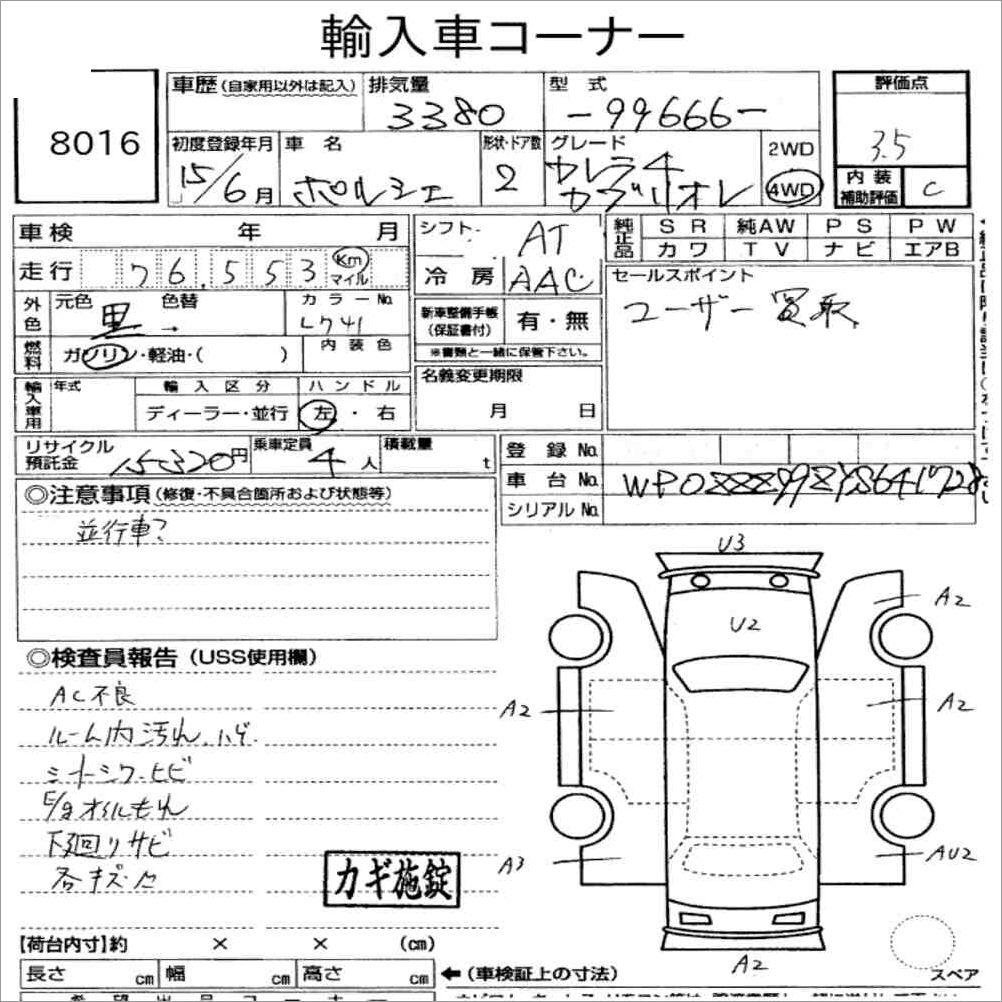 輸入車コーナー
8016
車歴 (自家用以外は記入) 排気量 型式 評価点
3380 -99666- 3.5
初度登録年月 車名 形状・ドア数 グレード 2WD 内装補助評価
15/6月 ポルシェ 2 カレラ4 カブリオレ 4WD C
車検 年 月 シフト AT 純正品 SR 純AW PS PW
カワ TV ナビ エアB
走行 76,553 Km マイル 冷房 AAC セールスポイント
ユーザー買取
外色 元色 黒 色替 カラーNo. L741 新車整備手帳(保証書付) 有・無
※書類と一緒に保管下さい。
燃料 ガソリン・軽油・( ) 内装色
輸入車用 年式 輸入区分 ハンドル 名義変更期限
ディーラー・並行 左・右 月 日
リサイクル預託金 15320円 乗車定員 4人 積載量 t 登録No.
車台No. WP0ZZZ99ZYS641728
シリアルNo.
◎注意事項(修復・不具合箇所および状態等)
並行車?
U3
U2
A2
◎検査員報告(USS使用欄)
AC不良
A2 A2
ルーム内汚れ、ハゲ
シートシワ・ヒビ
E/gオイルもれ
下廻りサビ
各キズ凹
カギ施錠
A3 AU2
A2
スペア
【荷台内寸】約 × × (cm)
長さ cm 幅 cm 高さ cm ←(車検証上の寸法)